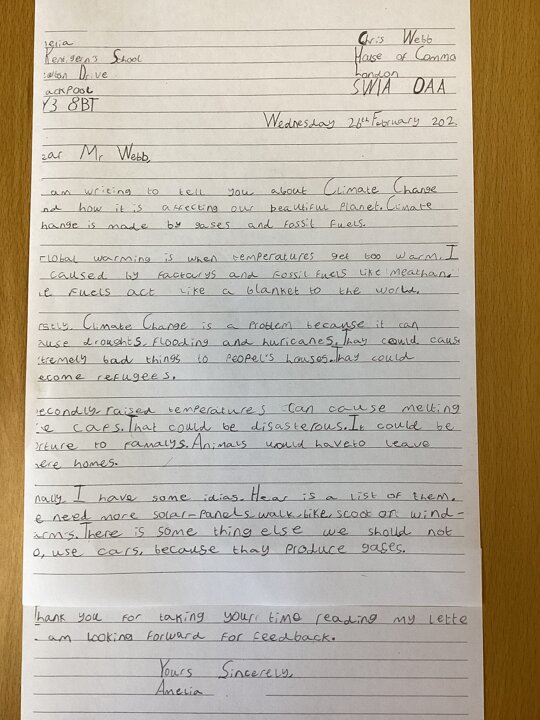 elia
Kentigern's School
Drive
ackpool
Y3 8BT
Chris Webb
House of Commo
London
SW1A OAA
Wednesday 26th February 202
ear Mr Webb,
am writing to tell you about Climate Change
nd how it is affecting our beautiful planet. Climate
hange is made by gases and fossil fuels.
lobal warming is when temperatures get too warm. I
caused by factorys and fossil fuels like meathan.
e fuels act like a blanket to the world.
rstly, Climate Change is a problem because it can
ause droughts, flooding and huricanes. Thay could cause
tremely bad things to peopel's houses. Thay could
ecome refugees.
econdly, raised temperatures can cause melting
e caps. That could be disasterous. It could be
rture to familys. Animals would haveto leave
ere homes.
nally, I have some idias. Hear is a list of them.
e need more solar-panels, walk, bike, scoot or wind-
arms. There is some thing else we should not
o, use cars, because thay produce gases.
hank you for taking your time reading my lette
am looking forward for feedback.
Yours Sincerely,
Amelia